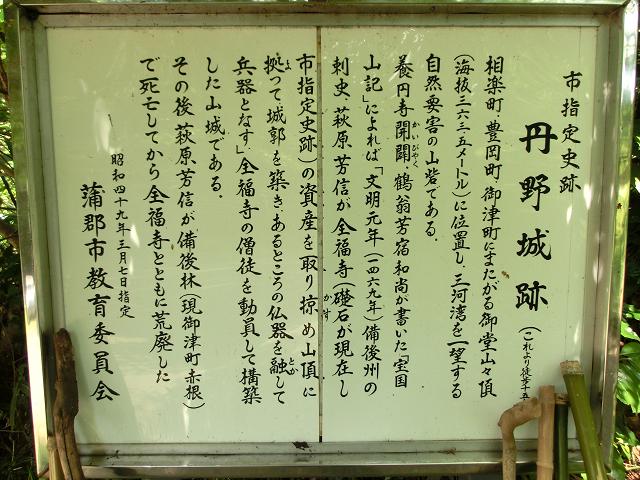 市指定史跡
丹野城跡
（これより徒歩十五
相楽町、豊岡町、御津町にまたがる御堂山々頂
（海抜三六三・五メートル）に位置し、三河湾を一望する
自然要害の山砦である。
養円寺開闢、鶴翁芳宿和尚が書いた「宝国
かいびやく
山記」によれば「文明元年（一四六九年）備後州の
刺史、萩原、芳信が全福寺（礎石が現在し
市指定史跡）の資産を取り掠め山頂に
かす
拠って城郭を築き、あるところの仏器を融して
よ
とか
兵器となす」全福寺の僧徒を動員して構築
した山城である。
その後萩原、芳信が、備後林（現御津町赤根）
で死亡してから全福寺とともに荒廃した
昭和四十九年三月七日指定
蒲郡市教育委員会